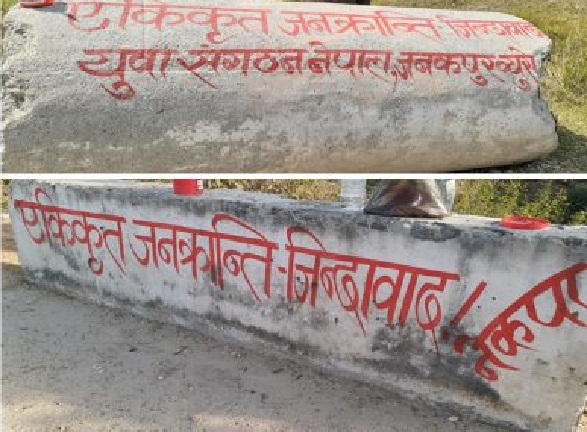 एकिकृत जनक्रान्ति जिन्दावाद
युवा संगठन नेपाल, जनकपुर व्युरो
एकिकृत जनक्रान्ति - जिन्दावाद !
नेकपा